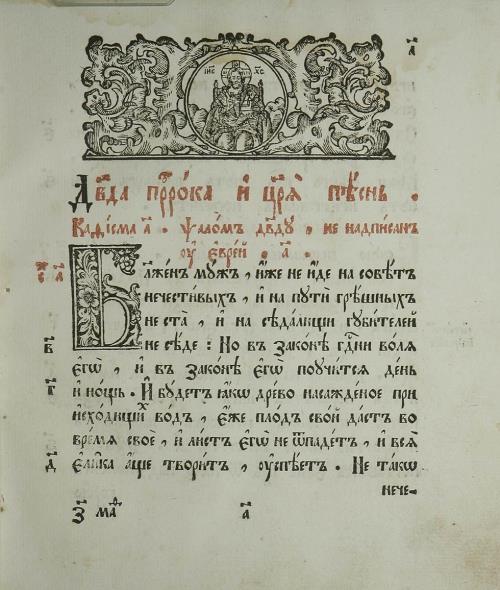 І҃С Х҃С
а҃
Дв҃да прⷪ҇рока и҆ цр҃ѧ̀ пѣ́снь .
Каѳі́сма а҃ . Ѱало́мъ дв҃дꙋ , не надпи́санъ
ᲂу҆ є҆вре́й . а҃ .
а҃
Бл҃же́нъ мꙋ́жъ , и҆́же не и҆́де на совѣ́тъ
нечести́выхъ , и҆ на пꙋтѝ грѣ́шныхъ
не ста̀ , и҆ на сѣда́лищи гꙋби́телей
не сѣ́де : Но в зако́нѣ гдⷭ҇ни во́лѧ
в҃
є҆гѡ̀ , и҆ в зако́нѣ є҆гѡ̀ поꙋчи́тсѧ де́нь
г҃
и҆ но́щь . И҆ бꙋ́детъ ꙗ҆́кѡ дре́во насажде́ное при
и҆схо́дищихъ во́дъ , є҆́же пло́дъ сво́й да́стъ во
вре́мѧ своѐ , и҆ ли́стъ є҆гѡ̀ не ѿпаде́тъ , и҆ всѧ̑
д҃
є҆ли̑ка а҆́ще твори́тъ , ᲂу҆спѣ́етъ . Не та́кѡ
нече-
а҃